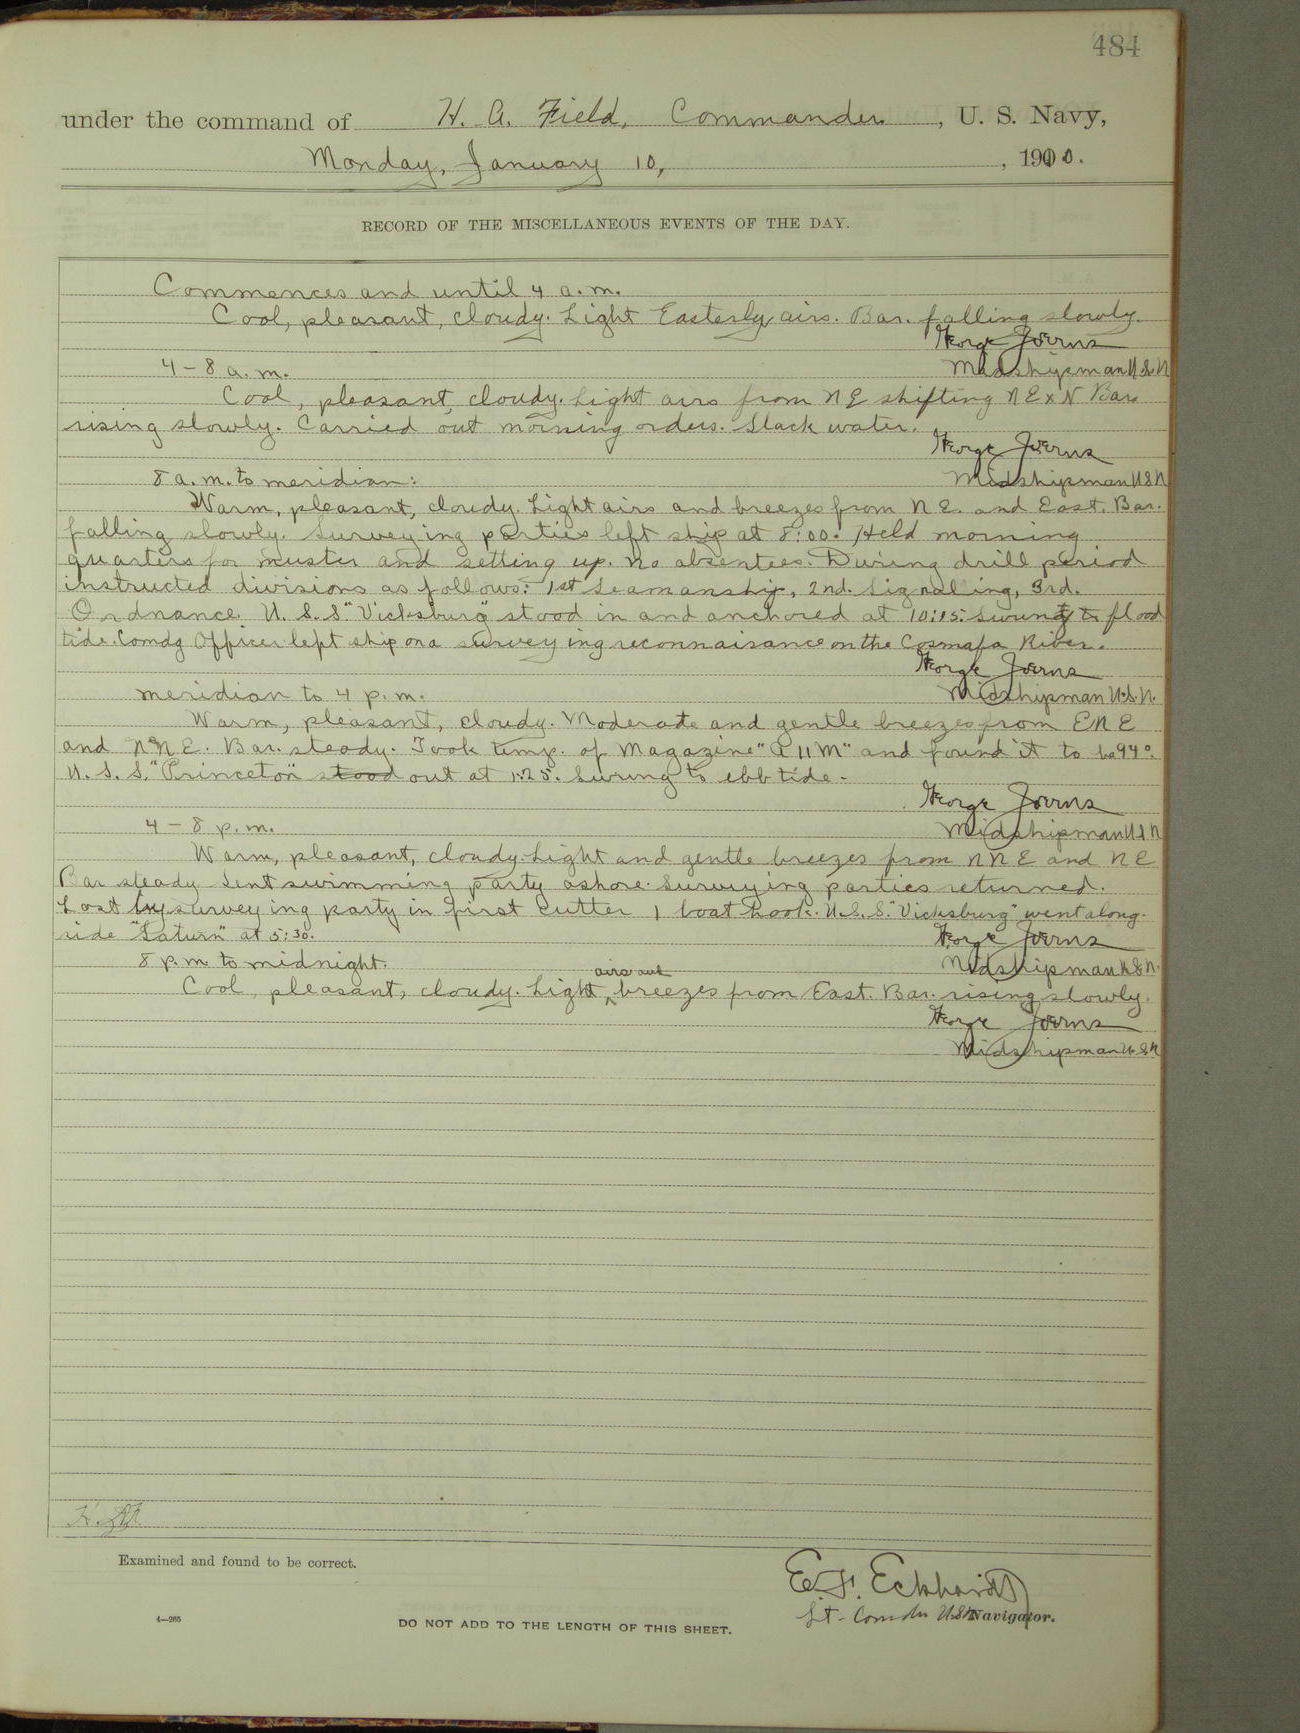 484
under the command of H. A. Field, Commander, U. S. Navy,
Monday, January 10, , 1910.
RECORD OF THE MISCELLANEOUS EVENTS OF THE DAY.
Commences and until 4 a.m.
Cool, pleasant, cloudy. Light Easterly airs. Bar. falling slowly.
George Joerns
4 – 8 a.m. Midshipman U.S.N
Cool, pleasant, cloudy. Light airs from NE shifting NExN Bar.
rising slowly. Carried out morning orders. Slack water.
George Joerns
8 a.m. to meridian: Midshipman U S N
Warm, pleasant, cloudy. Light airs and breezes from N E. and East. Bar.
falling slowly. Surveying parties left ship at 8:00. Held morning
quarters for muster and setting up. No absentees. During drill period
instructed divisions as follows: 1st Seamanship, 2nd. Signalling, 3rd.
Ordnance. U. S. S. "Vicksburg" stood in and anchored at 10:15. Swung to flood
tide. Comdg Officer left ship on a surveying reconnaisance on the River.
George Joerns
meridian to 4 p.m. Midshipman U.S.N.
Warm, pleasant, cloudy. Moderate and gentle breezes from ENE
and NNE. Bar. steady. Took temp. of Magazine "A 11 M" and found it to be 94°.
U. S. S. "Princeton" stood out at 1:25. Swung to ebb tide.
George Joerns
4 – 8 p.m. Midshipman U S N
Warm, pleasant, cloudy. Light and gentle breezes from NNE and NE
Bar steady Sent swimming party ashore. Surveying parties returned.
Lost by surveying party in first cutter 1 boat hook. U.S.S. "Vicksburg" went along-
side "Saturn" at 5:30. George Joerns
8 p.m. to midnight. Midshipman U.S.N.
Cool, pleasant, cloudy. Light airs and breezes from East. Bar. rising slowly.
George Joerns
Midshipman U.S.N
Examined and found to be correct.
E. F. Eckhardt
Lt-Comdr USN Navigator.
4—265
DO NOT ADD TO THE LENGTH OF THIS SHEET.